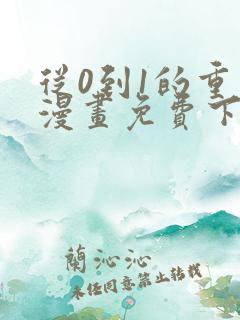 從0到1的重
漫畫免費下
蘭沁沁
未经同意禁止转载